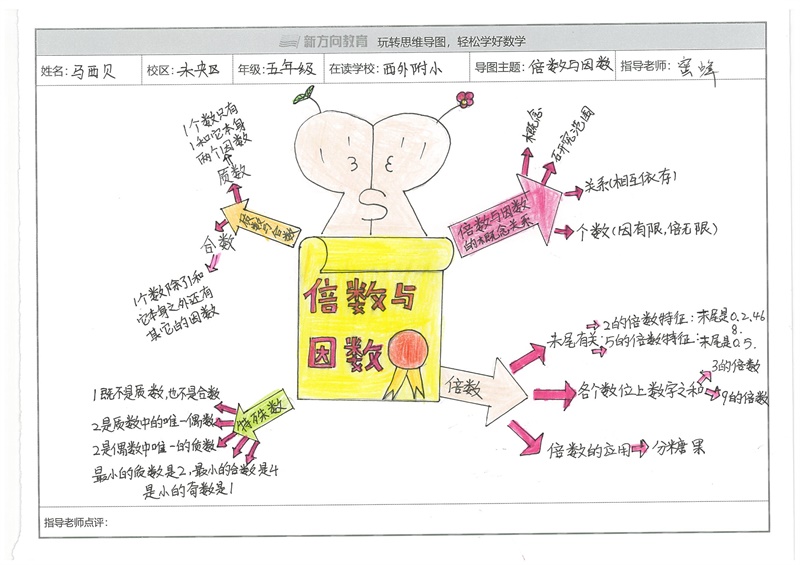 新方向教育 玩转思维导图，轻松学好数学
姓名：马西贝 校区：未央区 年级：五年级 在读学校：西外附小 导图主题：倍数与因数 指导老师：蜜蜂
1个数只有
1和它本身
两个因数
质数
质数与合数
合数
1个数除了1和
它本身之外还有
其它的因数
倍数与因数
的概念关系
概念
研究范围
关系(相互依存)
个数(因有限,倍无限)
倍数与
因数
倍数
末尾有关:
2的倍数特征:末尾是0.2.46
8.
5的倍数特征:末尾是0.5.
各个数位上数字之和
3的倍数
9的倍数
倍数的应用
分糖果
特殊数
1既不是质数,也不是合数
2是质数中的唯一偶数
2是偶数中唯一的质数
最小的质数是2,最小的合数是4
是小的奇数是1
指导老师点评：